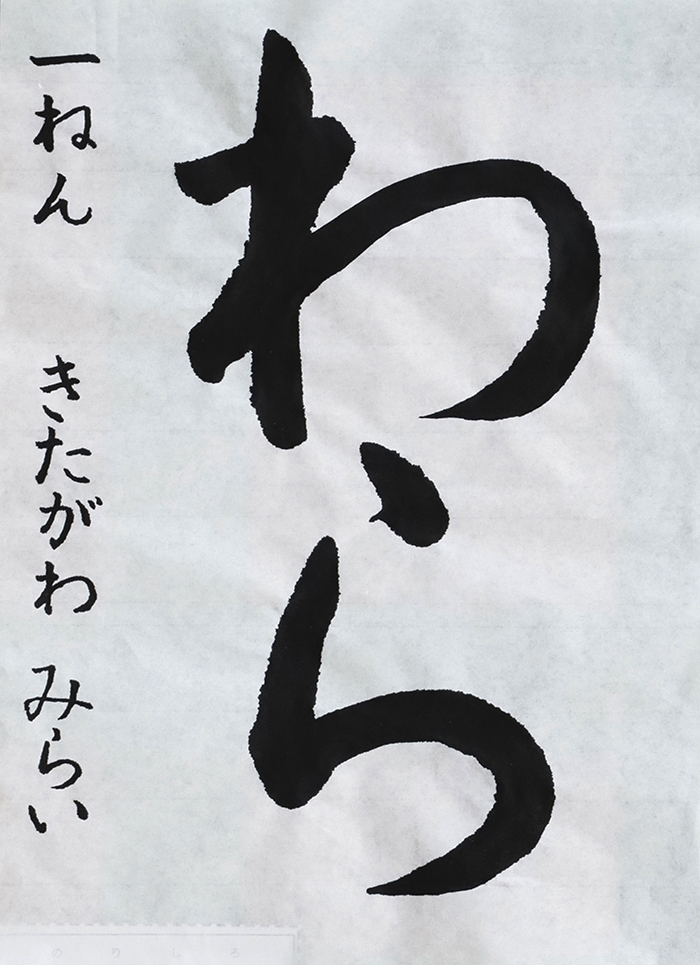 わら
一ねん きたがわ みらい